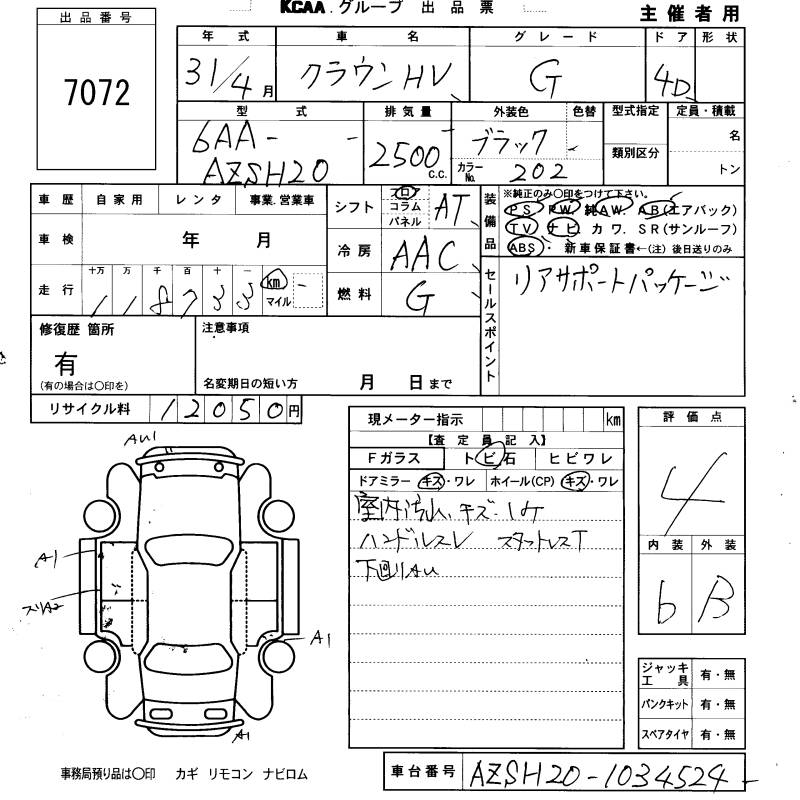 KCAA.グループ 出品票
主催者用
出品番号
7072
年式 車名 グレード ドア 形状
31/4月 クラウンHV G 4D
型式 排気量 外装色 色替 型式指定 定員・積載
6AA-
AZSH20
2500 C.C.
ブラック
カラーNo. 202
類別区分
名
トン
車歴 自家用 レンタ 事業.営業車
車検 年 月
走行 十万 万 千 百 十 一
118733 km マイル
シフト フロア コラム パネル AT
冷房 AAC
燃料 G
装備品
※純正のみ〇印をつけて下さい。
PS PW 純AW. AB(エアバック)
TV ナビ カワ. SR(サンルーフ)
ABS ・新車保証書←(注)後日送りのみ
セールスポイント
リアサポートパッケージ
修復歴 箇所
有
(有の場合は〇印を)
注意事項
名変期日の短い方 月 日まで
リサイクル料 12050円
現メーター指示 km
【査定員記入】
Fガラス トビ石 ヒビワレ
ドアミラー キズ・ワレ ホイール(CP) キズ・ワレ
室内汚れ、キズ・
ハンドルスレ スタットレスT
下回りAu
評価点
4
内装 外装
b B
AU1
A1
A1
A1
ジャッキ工具 有・無
パンクキット 有・無
スペアタイヤ 有・無
事務局預り品は〇印 カギ リモコン ナビロム
車台番号 AZSH20-1034524